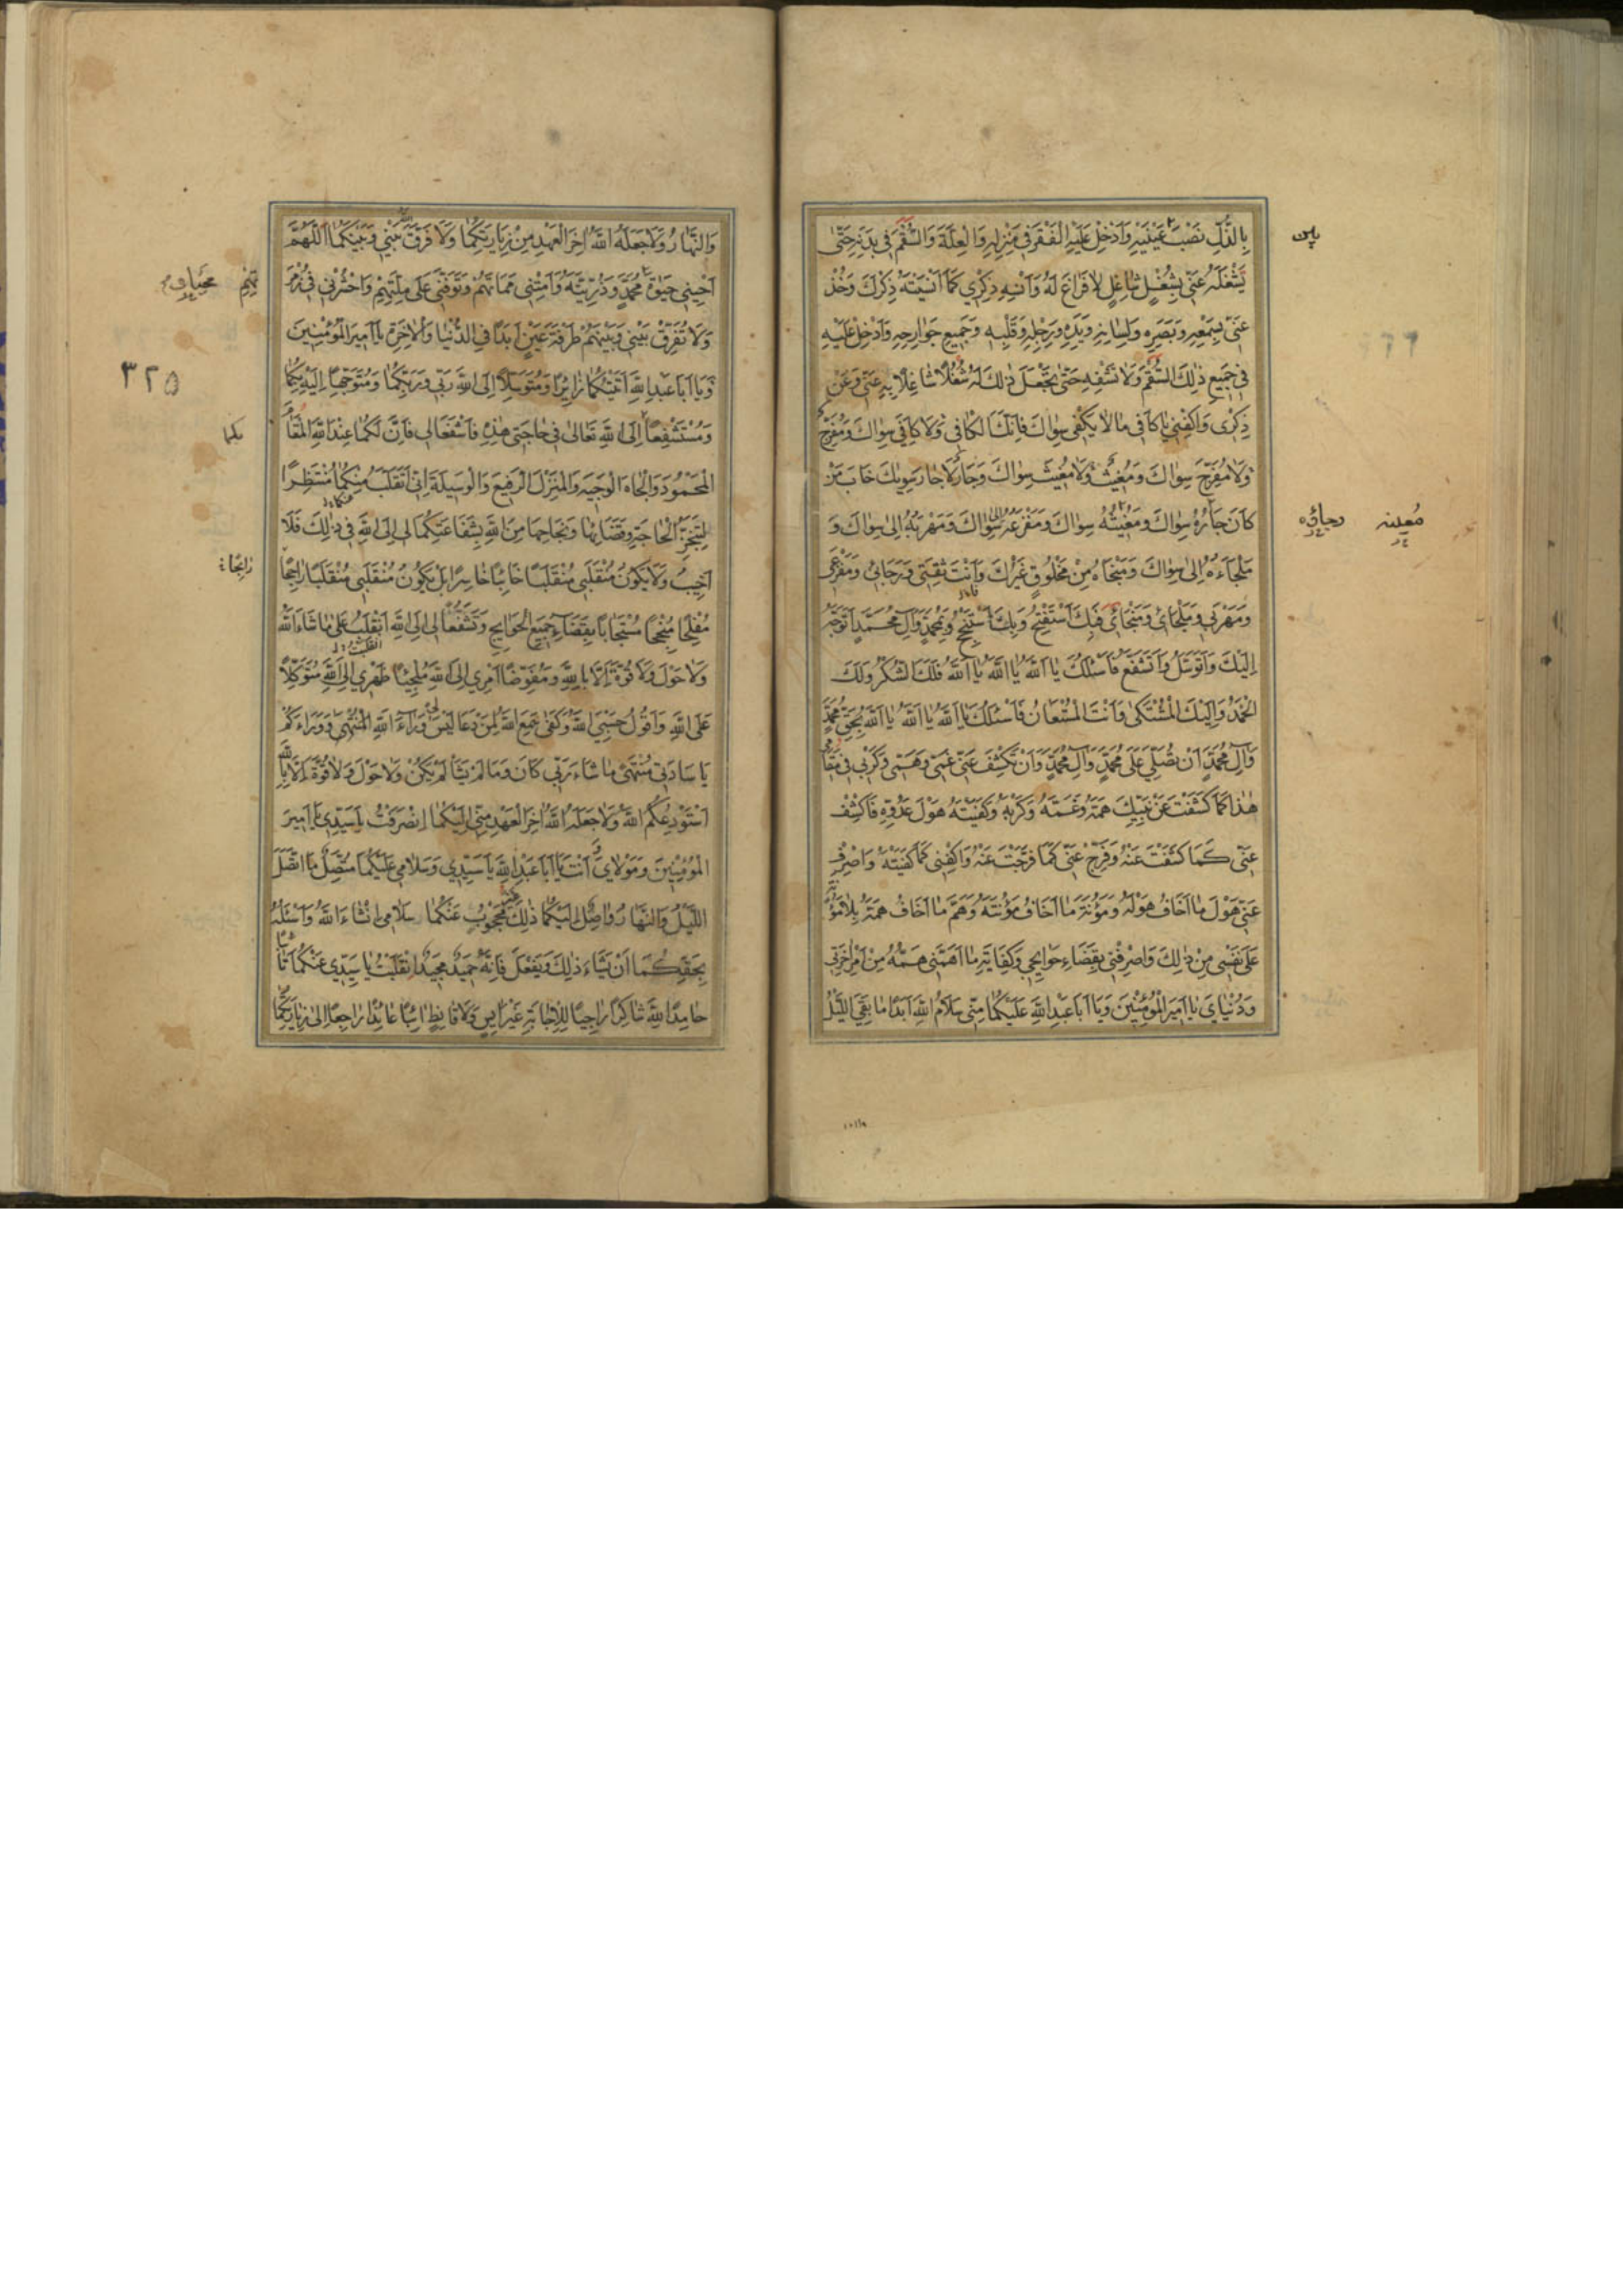 بِالذُّلِّ نَصْبَ عَيْنَيْهِ وَاَدْخِلْ عَلَيْهِ الْفَقْرَ فِي مَنْزِلِهِ وَالْعِلَّةَ وَالسُّقْمَ فِي بَدَنِهِ حَتّٰى
يَشْغَلَهُ عَنّي بِشُغْلٍ شٰاغِلٍ لا فَرٰاغَ لَهُ وَاَنْسِهِ ذِكْرِي كَمٰا اَنْسَيْتَهُ ذِكْرَكَ وَخُذْ
عَنّي بِسَمْعِهِ وَبَصَرِهِ وَلِسٰانِهِ وَيَدِهِ وَرِجْلِهِ وَقَلْبِهِ وَجَمِيعِ جَوٰارِحِهِ وَاَدْخِلْ عَلَيْهِ
في جَمِيعِ ذٰلِكَ السُّقْمَ وَلا تَشْفِهِ حَتّٰى تَجْعَلَ ذٰلِكَ لَهُ شُغْلًا شٰاغِلًا بِهِ عَنّي وَعَنْ
ذِكْرى وَاكْفِنِي يٰا كٰافِيَ مٰا لا يَكْفي سِوٰاكَ فَاِنَّكَ الْكٰافِي وَلا كٰافِيَ سِوٰاكَ وَمُفَرِّجٌ
وَلا مُفَرِّجَ سِوٰاكَ وَمُغيثٌ وَلا مُغيثَ سِوٰاكَ وَجٰارٌ لا جٰارَ سِوٰيكَ خٰابَ مَنْ
كٰانَ جٰارُهُ سِوٰاكَ وَمُغيثُهُ سِوٰاكَ وَمَفْزَعُهُ اِلى سِوٰاكَ وَمَهْرَبُهُ اِلى سِوٰاكَ وَ
مَلْجَاءُهُ اِلى سِوٰاكَ وَمَنْجٰاهُ مِنْ مَخْلُوقٍ غَيْرِكَ وَاَنْتَ ثِقَتي وَرَجٰائِي وَمَفْزَعى
وَمَهْرَبي وَمَلْجٰائِ وَمَنْجٰايَ فَبِكَ اَسْتَفْتِحُ وَبِكَ اَسْتَنْجِحُ وَبِمُحَمَّدٍ وَآلِ مُحَمَّدٍ اَتَوَجَّهُ
اِلَيْكَ وَاَتَوَسَّلُ وَاَتَشَفَّعُ فَاَسْئَلُكَ يٰا اَللّٰهُ يٰا اَللّٰهُ يٰا اَللّٰهُ فَلَكَ الشُّكْرُ وَلَكَ
الْحَمْدُ وَاِلَيْكَ الْمُشْتَكى وَاَنْتَ الْمُسْتَعٰانُ فَاَسْئَلُكَ يٰا اَللّٰهُ يٰا اَللّٰهُ يٰا اَللّٰهُ بِحَقِّ مُحَمَّدٍ
وَآلِ مُحَمَّدٍ اَنْ تُصَلِّيَ عَلى مُحَمَّدٍ وَآلِ مُحَمَّدٍ وَاَنْ تَكْشِفَ عَنّي غَمّي وَهَمّي وَكَرْبي في مَقٰامي
هٰذٰا كَمٰا كَشَفْتَ عَنْ نَبِيِّكَ هَمَّهُ وَغَمَّهُ وَكَرْبَهُ وَكَفَيْتَهُ هَوْلَ عَدُوِّهِ فَاكْشِفْ
عَنّي كَمٰا كَشَفْتَ عَنْهُ وَفَرِّجْ عَنّي كَمٰا فَرَّجْتَ عَنْهُ وَاكْفِنى كَمٰا كَفَيْتَهُ وَاصْرِفْ
عَنّي هَوْلَ مٰا اَخٰافُ هَوْلَهُ وَمَؤُنَةَ مٰا اَخٰافُ مَؤُنَتَهُ وَهَمَّ مٰا اَخٰافُ هَمَّهُ بِلا مَؤُنَةٍ
عَلى نَفْسى مِنْ ذٰلِكَ وَاصْرِفْني بِقَضٰاءِ حَوٰايِجي وَكِفٰايَةِ مٰا اَهَمَّني هَمُّهُ مِنْ اَمْرِ آخِرَتي
وَدُنْيٰايَ يٰا اَمِيرَ الْمُؤْمِنْينَ وَيٰا اَبٰا عَبْدِ اللّٰهِ عَلَيْكُمٰا مِنّى سَلاٰمُ اللّٰهِ اَبَدًا مٰا بَقِيَ اللَّيْلُ
١٠١١٩
وَالنَّهٰارُ وَلا جَعَلَهُ اللّٰهُ اٰخِرَ الْعَهْدِ مِنْ زِيٰارَتِكُمٰا وَلا فَرَّقَ اللّٰهُ بَيْني وَبَيْنَكُمٰا اَللّٰهُمَّ
اَحْيِني حَيٰوةَ مُحَمَّدٍ وَذُرِّيَّتِهِ وَاَمِتْنى مَمٰاتَهُمْ وَتَوَفَّني عَلى مِلَّتِهِمْ وَاحْشُرْني في زُمْرَ
وَلا تُفَرِّقْ بَيْني وَبَيْنَهُمْ طَرْفَةَ عَيْنٍ اَبَدًا فِي الدُّنْيٰا وَالْاٰخِرَةِ يٰا اَمِيرَ الْمُؤْمِنينَ
وَيٰا اَبٰا عَبْدِ اللّٰهِ اَتَيْتُكُمٰا زٰائِرًا وَمُتَوَسِّلًا اِلَى اللّٰهِ رَبّي وَرَبِّكُمٰا وَمُتَوَجِّهًا اِلَيْهِ بِكُمٰا
٣٢٥
وَمُسْتَشْفِعًا اِلَى اللّٰهِ تَعٰالى في حٰاجَتي هٰذِهِ فَاشْفَعٰالي فَاِنَّ لَكُمٰا عِنْدَ اللّٰهِ الْمَقٰامَ
الْمَحْمُودَ وَالْجٰاهَ الْوَجيهَ وَالْمَنْزِلَ الرَّفيعَ وَالْوَسيلَةَ اِنّي اَنْقَلِبُ مِنْكُمٰا مُنْتَظِرًا
لِتَنَجُّزِ الْحٰاجَةِ وَقَضٰائِهٰا وَنَجٰاحِهٰا مِنَ اللّٰهِ بِشَفٰاعَتِكُمٰا لي اِلَى اللّٰهِ في ذٰلِكَ فَلا
اَخيبُ وَلا يَكُونُ مُنْقَلَبي مُنْقَلَبًا خٰائِبًا خٰاسِرًا بَلْ يَكُونُ مُنْقَلَبي مُنْقَلَبًا رٰاجِحًا
مُفْلِحًا مُنْجِحًا مُسْتَجٰابًا بِقَضٰاءِ جَمِيعِ الْحَوٰايِجِ وَتَشَفَّعٰا لي اِلَى اللّٰهِ اَنْقَلِبُ عَلى مٰا شٰاءَ اللّٰهُ
وَلا حَوْلَ وَلا قُوَّةَ اِلّا بِاللّٰهِ وَمُفَوِّضًا اَمْري اِلَى اللّٰهِ مُلْجِئًا ظَهْري اِلَى اللّٰهِ مُتَوَكِّلًا
عَلَى اللّٰهِ وَاَقُولُ حَسْبِيَ اللّٰهُ وَكَفى سَمِعَ اللّٰهُ لِمَنْ دَعٰا لَيْسَ لي وَرٰاءَ اللّٰهِ الْمُنْتَهى وَوَرٰاءَكُمْ
يٰا سٰادَتي مُنْتَهىً مٰا شٰاءَ رَبّي كٰانَ وَمٰا لَمْ يَشَأْ لَمْ يَكُنْ وَلا حَوْلَ وَلا قُوَّةَ اِلّا بِاللّٰهِ
اَسْتَوْدِعُكُمُ اللّٰهَ وَلا جَعَلَهُ اللّٰهُ اٰخِرَ الْعَهْدِ مِنّي اِلَيْكُمٰا اِنْصَرَفْتُ يٰا سَيِّدي يٰا اَمِيرَ
الْمُؤْمِنينَ وَمَوْلايَ وَاَنْتَ يٰا اَبٰا عَبْدِ اللّٰهِ يٰا سَيِّدي وَسَلامي عَلَيْكُمٰا مُتَّصِلٌ مَا اتَّصَلَ
اللَّيْلُ وَالنَّهٰارُ وٰاصِلٌ اِلَيْكُمٰا ذٰلِكَ غَيْرُ مَحْجُوبٍ عَنْكُمٰا سَلامي اِنْشٰاءَ اللّٰهُ وَاَسْئَلُهُ
بِحَقِّكُمٰا اَنْ يَشٰاءَ ذٰلِكَ وَيَفْعَلَ فَاِنَّهُ حَميدٌ مَجيدٌ اِنْقَلَبْتُ يٰا سَيِّدَي عَنْكُمٰا تٰائِبًا
حٰامِدًا لِلّٰهِ شٰاكِرًا رٰاجِيًا لِلْاِجٰابَةِ غَيْرَ اٰيِسٍ وَلا قٰانِطٍ اٰئِبًا عٰائِدًا رٰاجِعًا اِلى زِيٰارَتِكُمٰا